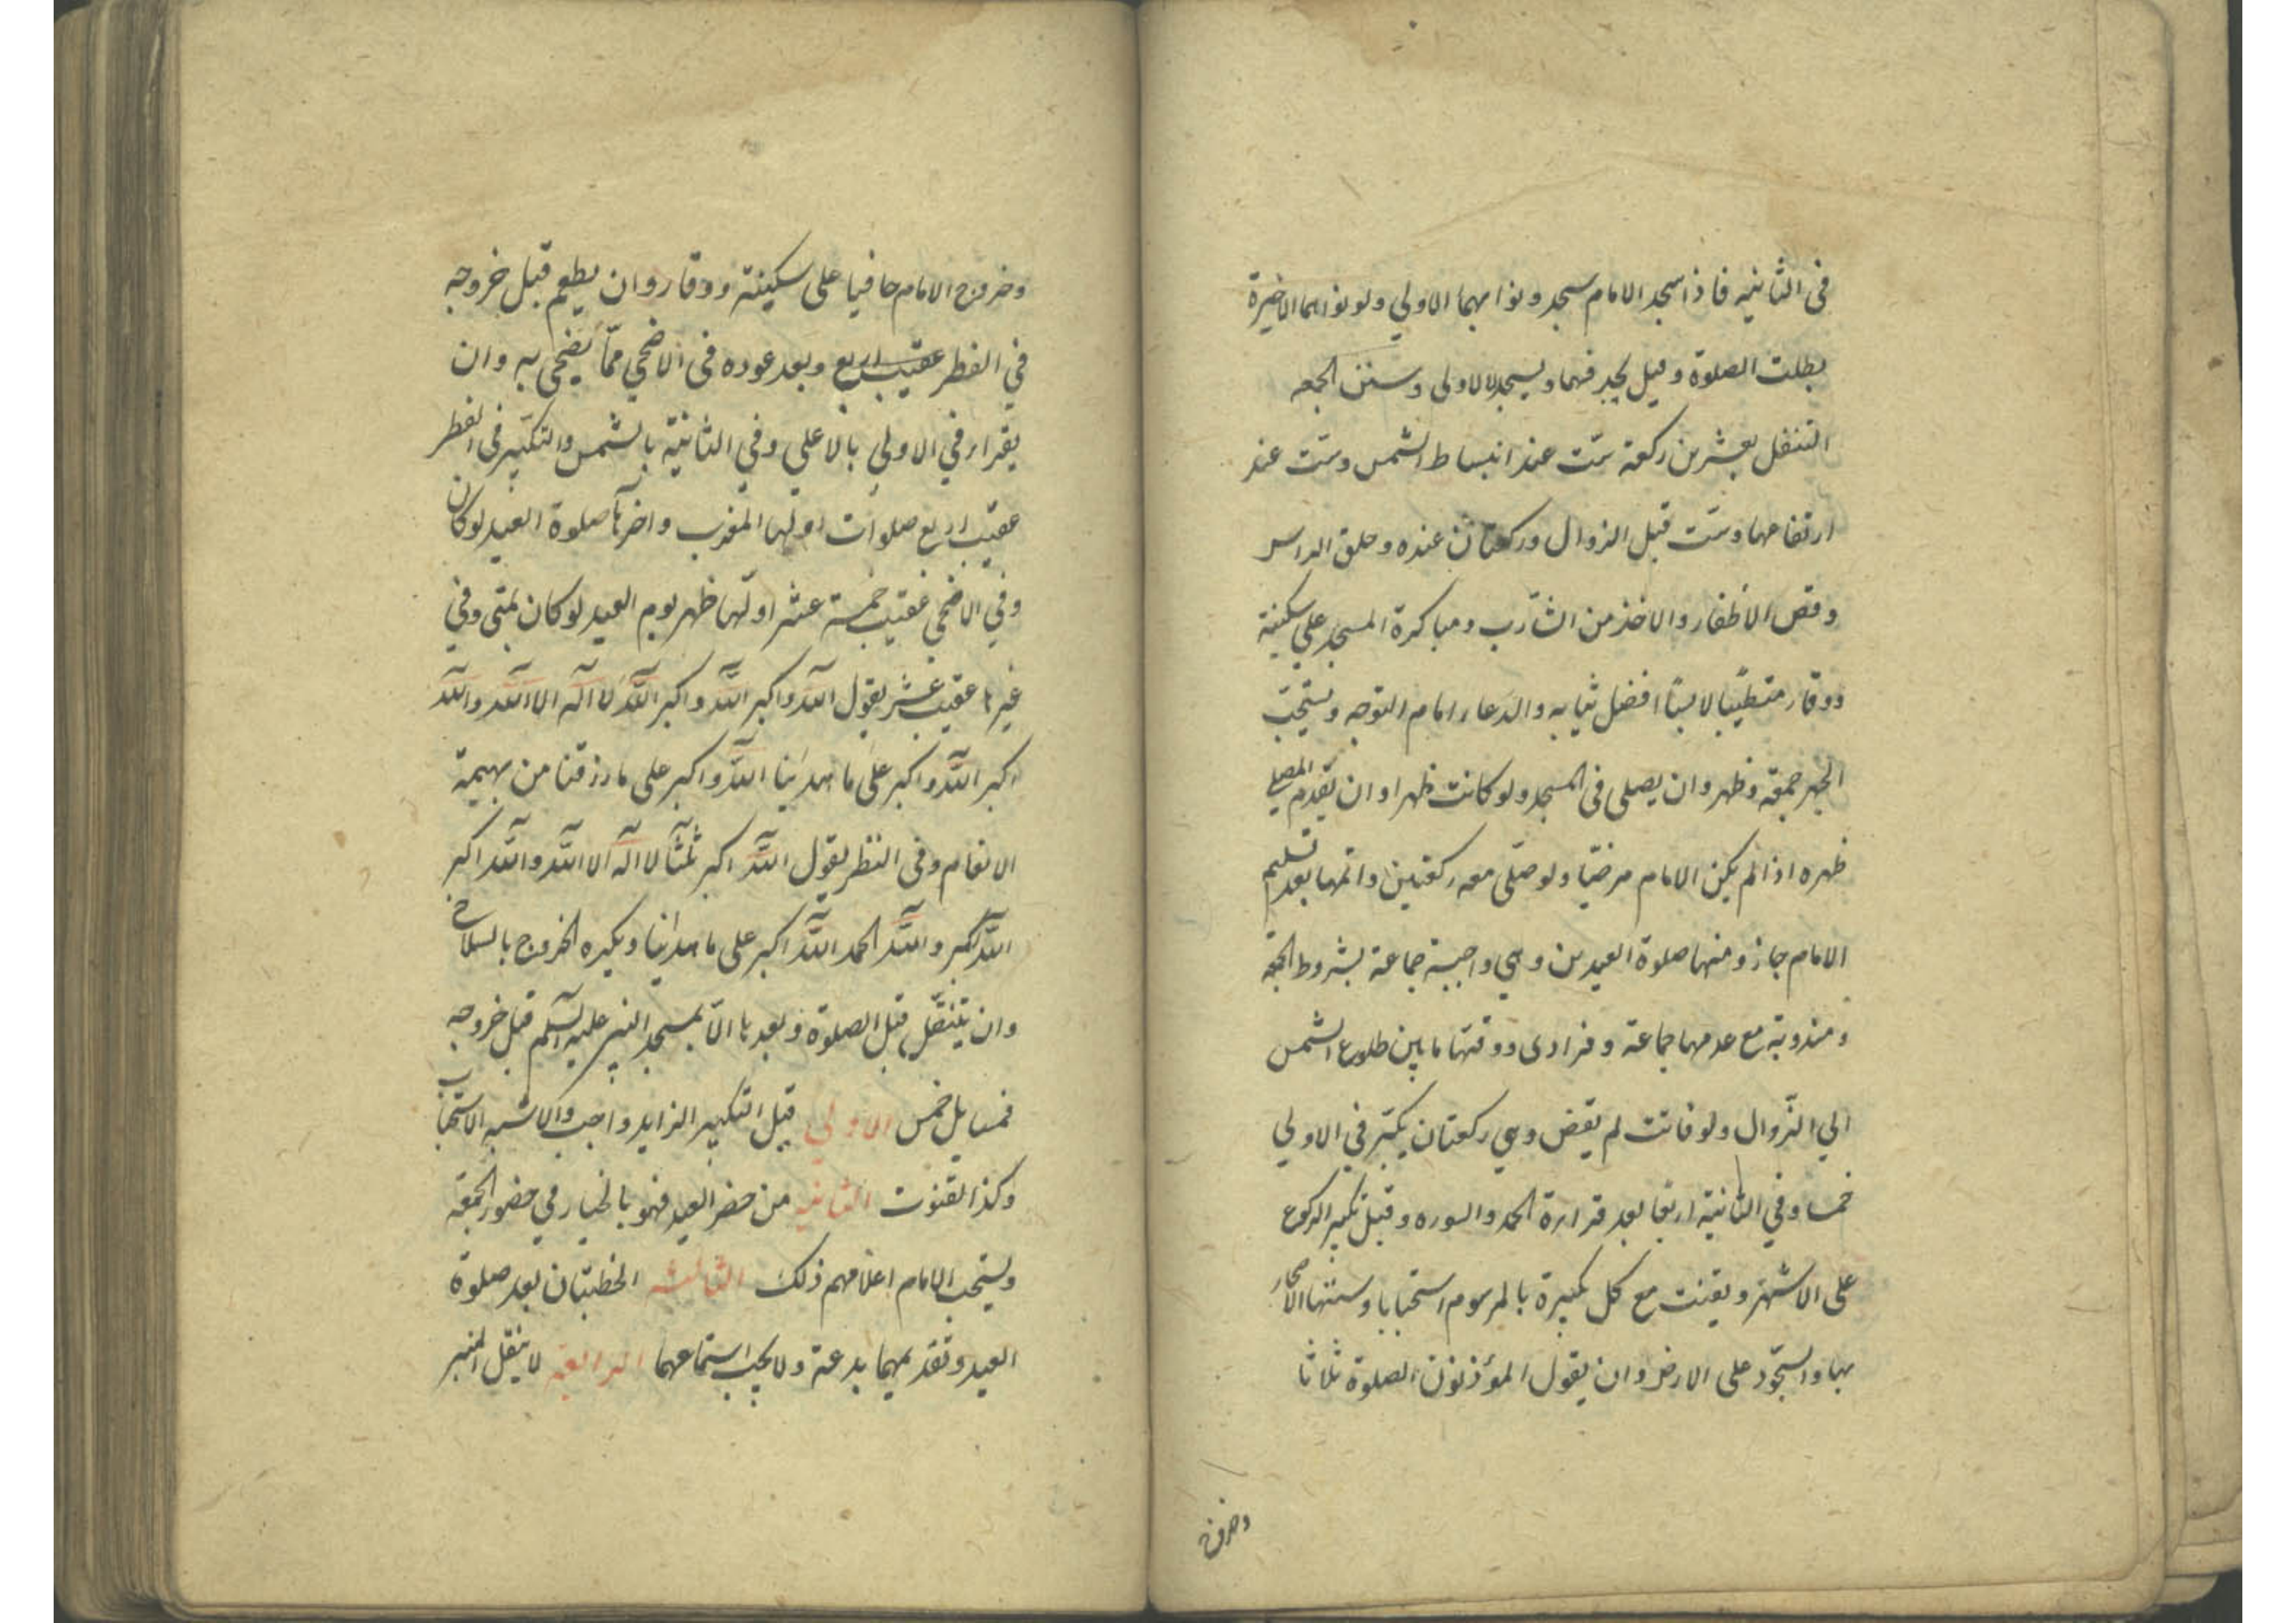 في الثانيه فاذا سجد الامام سجد ونوا بهما الاولي ولو نواهما الاخيرة
بطلت الصلوة وقيل يحذفهما ويسجد للاولى وسنن الجمعه
التنفل بعشرين ركعة ست عند انبساط الشمس وست عند
ارتفاعها وست قبل الزوال وركعتان عنده وحلق الراس
وقص الاظفار والاخذ من الشارب ومباكرة المسجد على سكينة
ووقار متطيبا لابسا افضل ثيابه والدعاء امام التوجه ويستحب
الجهر جمعة وظهر وان يصلى فى المسجد ولو كانت ظهرا وان يقدم المصلي
ظهره اذا لم يكن الامام مرضيا ولو صلى معه ركعتين واتمها بعد تسليم
الامام جاز ومنها صلوة العيدين وهي واجبة جماعة بشروط الجمعة
ومندوبة مع عدمها جماعة وفرادى ووقتها ما بين طلوع الشمس
الي الزوال ولو فاتت لم تقض وهي ركعتان يكبر في الاولي
خمسا وفي الثانية اربعا بعد قراءة الحمد والسوره وقبل تكبير الركوع
على الاشهر ويقنت مع كل تكبيرة بالمرسوم استحبابا وسننها الاصحار
بها والسجود على الارض وان يقول المؤذنون الصلوة ثلاثا
وخروج
وخروج الامام حافيا على سكينة ووقار وان يطعم قبل خروجه
في الفطر عقيب اربع وبعد عوده فى الاضحي مما يضحى به وان
يقراء في الاولي بالاعلي وفي الثانية بالشمس والتكبير فى الفطر
عقيب اربع صلوات اولها المغرب واخرها صلوة العيد لو كان
وفي الاضحي عقيب خمسة عشر اولها ظهر يوم العيد لو كان بمنى وفي
غيرها عقيب عشر يقول الله واكبر الله واكبر الله لا اله الا الله والله
اكبر الله واكبر على ما هدانا الله واكبر على ما رزقنا من بهيمة
الانعام وفى الفطر يقول الله اكبر ثلثا لا اله الا الله والله اكبر
الله اكبر والله الحمد الله اكبر على ما هدانا ويكره الخروج بالسلاح
وان يتنفل قبل الصلوة وبعدها الا بمسجد النبي عليه السلم قبل خروجه
فمسايل خمس الاولي قيل التكبير الزايد واجب والاشبه الاستحباب
وكذا القنوت الثانيه من حضر العيد فهو بالخيار في حضور الجمعة
ويستحب الامام اعلامهم ذلك الثالثه الخطبتان بعد صلوة
العيد وتقديمهما بدعة ولا يجب استماعهما الرابعة لا ينقل المنبر